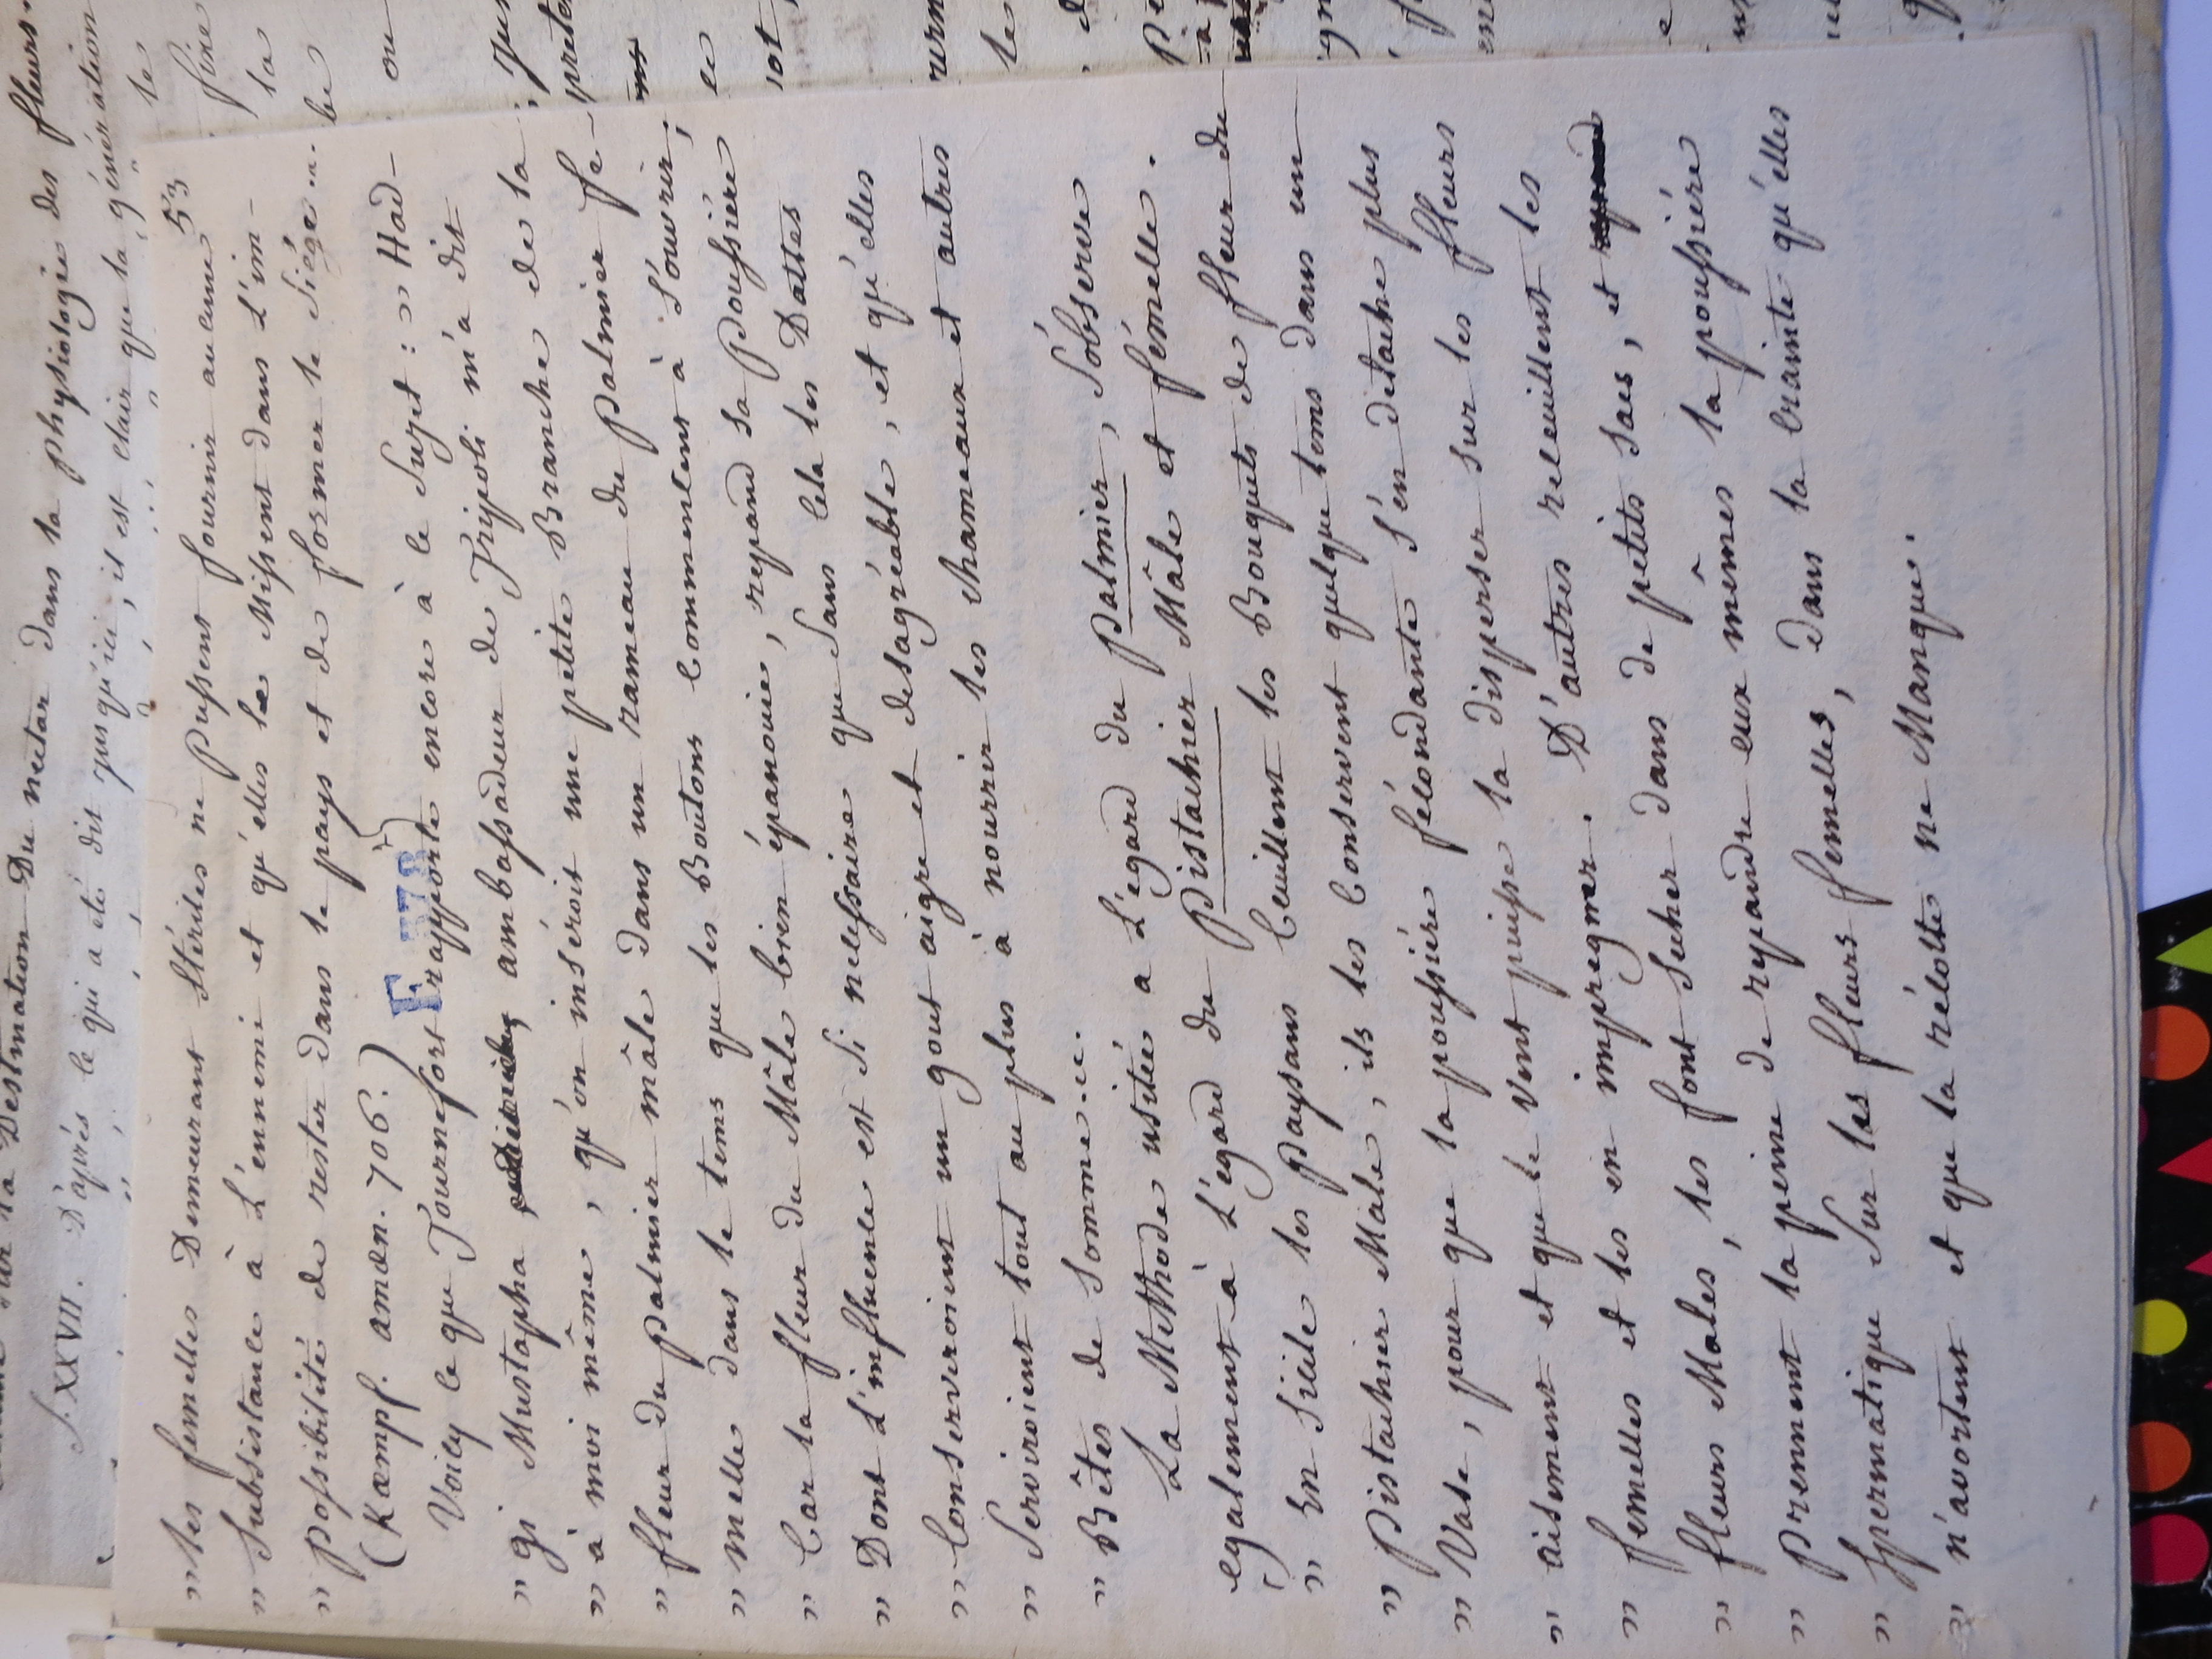 Destination Du nectar dans la physiologie des fleurs.
§. XXVII. D'après ce qui a été dit jusqu'ici, il est clair que la génération
53
" les femelles Demeurant Stériles ne Pussent fournir aucune
" Subsistance à L'ennemi et qu'elles le Missent dans L'im-
" possibilité de rester dans le pays et de former le Siége...
(Kæmpf. amœn. 706.)
Voicy ce que Tournefort rapporte encore à ce Sujet : " Had-
" gi Mustapha ambassadeur de Tripoli m'a dit
" à moi même, qu'on inséroit une petite Branche de la
" fleur du palmier mâle dans un rameau du palmier fe-
" melle dans le tems que les Boutons Commencent à s'ouvrir;
" Car la fleur du Mâle bien épanouie, repand sa Poussière
" Dont L'influence est Si necessaire que Sans Cela les Dattes
" Conserveroient un gout aigre et desagréable, et qu'elles
" Serviroient tout au plus à nourrir les chameaux et autres
" Bêtes de Somme...
La Methode usitée a L'egard du Palmier, S'observe
egalement à L'égard du Pistachier Mâle et fémelle.
" En Sicile les Paysans Cueillent les Bouquets de fleur du
" Pistachier Mâle, ils les Conservent quelque tems dans un
" Vase, pour que la poussiére fécondante s'en détache plus
" aisement et que le Vent puisse la disperser sur les fleurs
" femelles et les en impregner. D'autres receuillent les
" fleurs Males, les font Secher dans de petits Sacs, et
" Prennent la peine de repandre eux mêmes la poussiére
" Spermatique Sur les fleurs femelles, dans la crainte qu'elles
" n'avortent et que la récolte ne Manque.